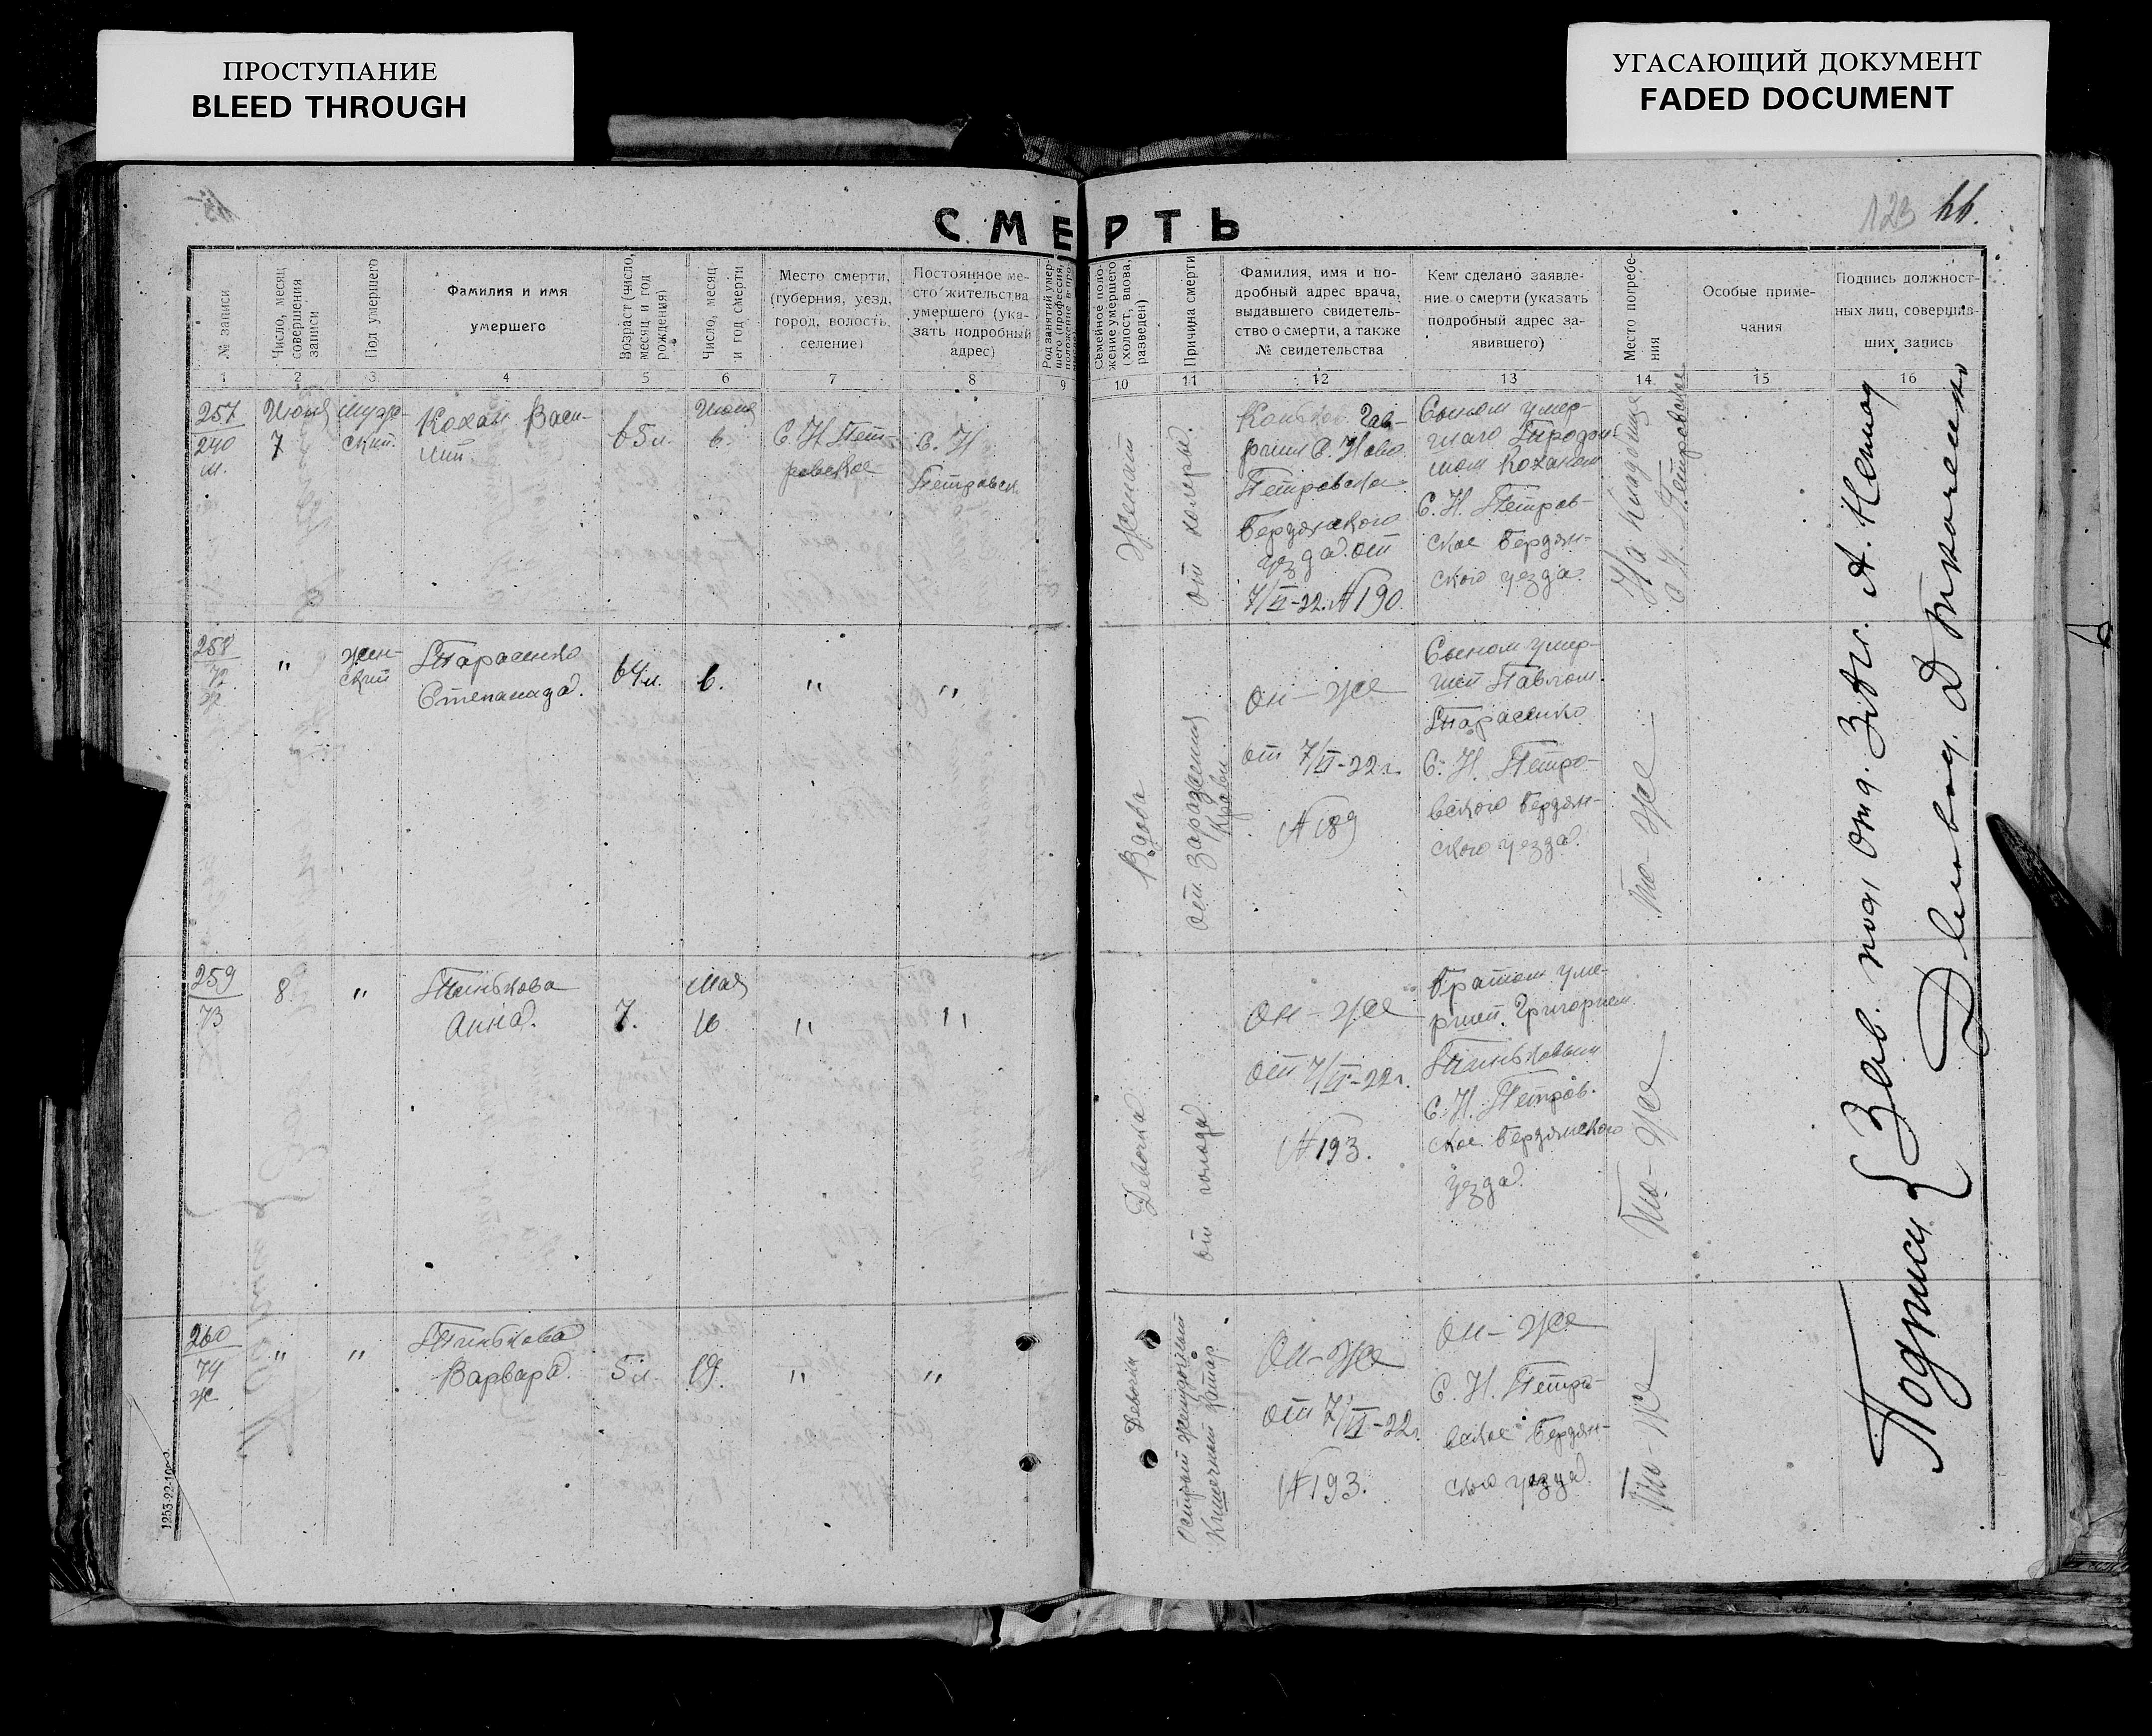 ПРОСТУПАНИЕ
BLEED THROUGH
УГАСАЮЩИЙ ДОКУМЕНТ
FADED DOCUMENT
123 66.
СМЕРТЬ
№ записи
Число, месяц
совершения
записи
Пол умершего
Фамилия и имя
умершего
Возраст (число,
месяц и год
рождения)
Число, месяц
и год смерти
Место смерти,
(губерния, уезд,
город, волость,
селение)
Постоянное ме-
сто жительства
умершего (ука-
зать подробный
адрес)
Род занятий умер-
шего (профессия,
положение в про-
Семейное поло-
жение умершего
(холост, вдова,
разведен)
Причина смерти
Фамилия, имя и по-
дробный адрес врача,
выдавшего свидетель-
ство о смерти, а также
№ свидетельства
Кем сделано заявле-
ние о смерти (указать
подробный адрес за-
явившего)
Место погребе-
ния
Особые приме-
чания
Подпись должност-
ных лиц, соверша-
ших запись
1 2 3 4 5 6 7 8 9 10 11 12 13 14 15 16
257
240
м.
Июня
7
Муж-
ский.
Кохан Васи-
лий.
65 л.
Июня
6.
С. Н. Пет
ровское
С. Н
Петровск.
Женат
от холеры.
Гав-
риил С. Ново
Петровска
Бердянского
уезда. от
7/VI-22. № 190.
Сыном умер-
шаго
Коханом
С. Н. Петров-
ское Бердян-
ского уезда.
На Кладбище
с. Н. Петровское
258
72
ж.
"
жен-
ский
Тарасенко
Степанида.
64 л.
6.
"
"
Вдова
от заражения
крови
Он-же
от 7/VI-22 г.
№ 189
Сыном умер-
шей Павлом
Тарасенко
С. Н. Петро-
вского Бердян-
ского уезда.
то-же
259
73
8.
"
Пинькова
Анна.
7.
Мая
16
"
"
Девочка
от голода
Он-же
от 7/VI-22 г.
№ 193.
Братом уме-
ршей. Григорием
Пиньковым
С. Н. Петров.
ское Бердянского
уезда.
то-же
260
74
ж
"
"
Пинькова
Варвара.
5 л.
19.
"
"
Девочка
Острый желудочный
кишечный катар
Он-же
от 7/VI-22 г.
№ 193.
Он-же
С. Н. Петро-
вское Бердян-
ского уезда.
то-же
Подписи { Зав. под. отд. ЗАГС. А.
Делопроизв. Д Ткаченко
1253-22-10с-з.